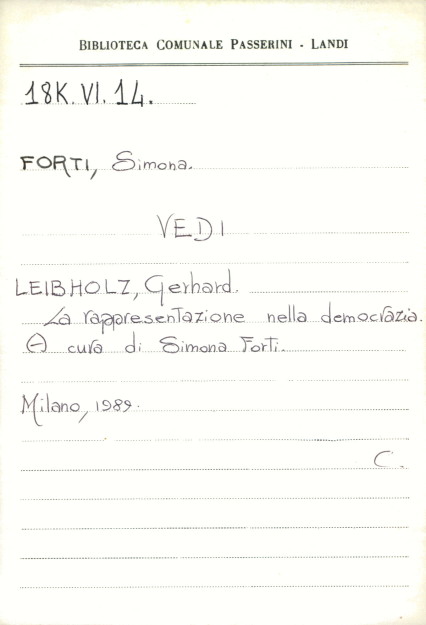 BIBLIOTECA COMUNALE PASSERINI - LANDI
18K.VI.14.
FORTI, Simona.
VEDI
LEIBHOLZ, Gerhard.
La rappresentazione nella democrazia.
A cura di Simona Forti.
Milano, 1989.
C.